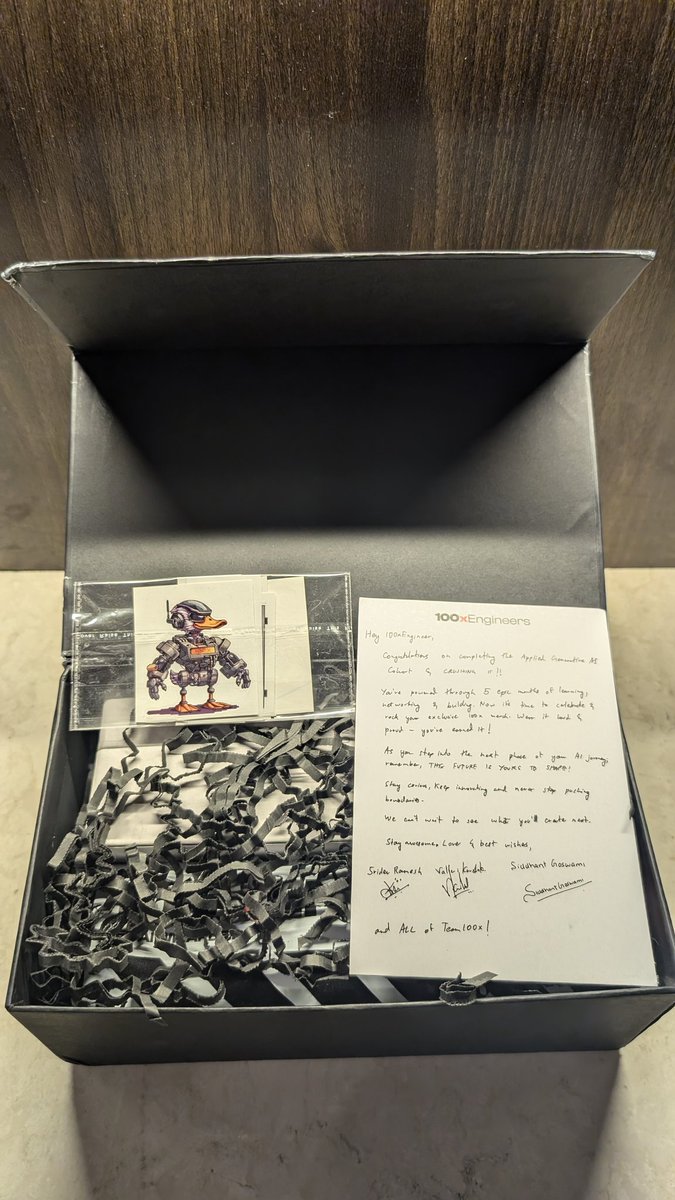 100xEngineers
Hey 100xEngineer,
Congratulations on completing the Applied Generative AI
Cohort & CRUSHING it!!
You've powered through 5 epic months of learning,
networking & building. Now it's time to celebrate &
rock your exclusive 100x merch. Wear it loud &
proud - you've earned it!
As you step into the next phase of your AI journey,
remember, THE FUTURE IS YOURS TO SHAPE!
Stay curious, Keep innovating and never stop pushing
boundaries.
We can't wait to see what you'll create next.
Stay awesome, Love & best wishes,
Sridev Ramesh Siddhant Goswami
Siddhant Goswami
and ALL of Team 100x!